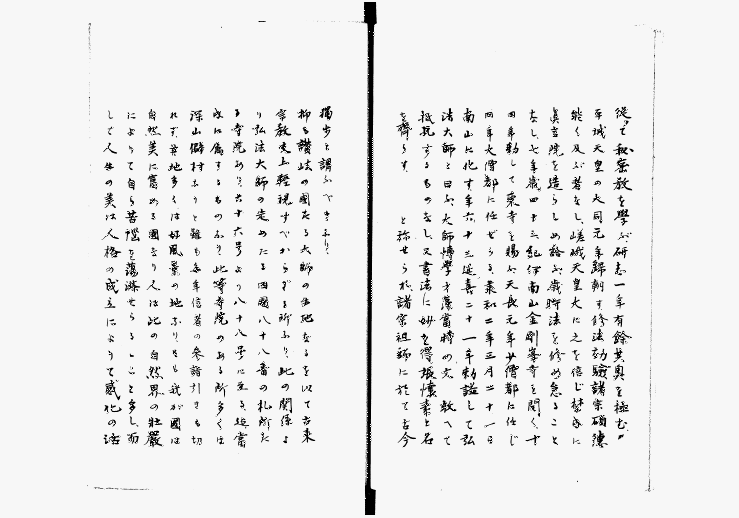 従って秘密教を學ぶ研志一年有餘其奥を極む
平城天皇の大同元年歸朝す修法効驗諸宗碩徳
能く及ぶ者なし嵯峨天皇大に之を信じ禁中に
眞言院を造らしめ給ふ歳時法を修め怠ること
なし七年歳四十三紀伊南山金剛峯寺を開く十
四年勅して東寺を賜ふ天長元年少僧都に任じ
四年大僧都に任ぜらる承和二年三月二十一日
南山に化す年六十三延喜二十一年勅諡して弘
法大師と曰ふ大師博學才藻當時の文 敢へて
抵抗するものなし又書法に妙を得張懷素と名
を齊うす と称せられ諸宗祖師に於て古今
獨歩と謂ふべきなり
抑も讃岐の國たる大師の生地なるを以て古来
宗教史上軽視すべからざる所なり此の關係よ
り弘法大師の定めたる四國八十八番の札所た
る寺院あり六十六号より八十八号に至る迄當
國に属するものなり此等寺院のある所多くは
深山僻村なりと雖も年年信者の參詣引きも切
れず其地多くは好風景の地なりそも我が國は
自然美に富める國なり人は此の自然界の壯嚴
によりて自ら苦惱を蕩滌せらるゝこと多し而
して人生の美は人格の成立によりて感化の活